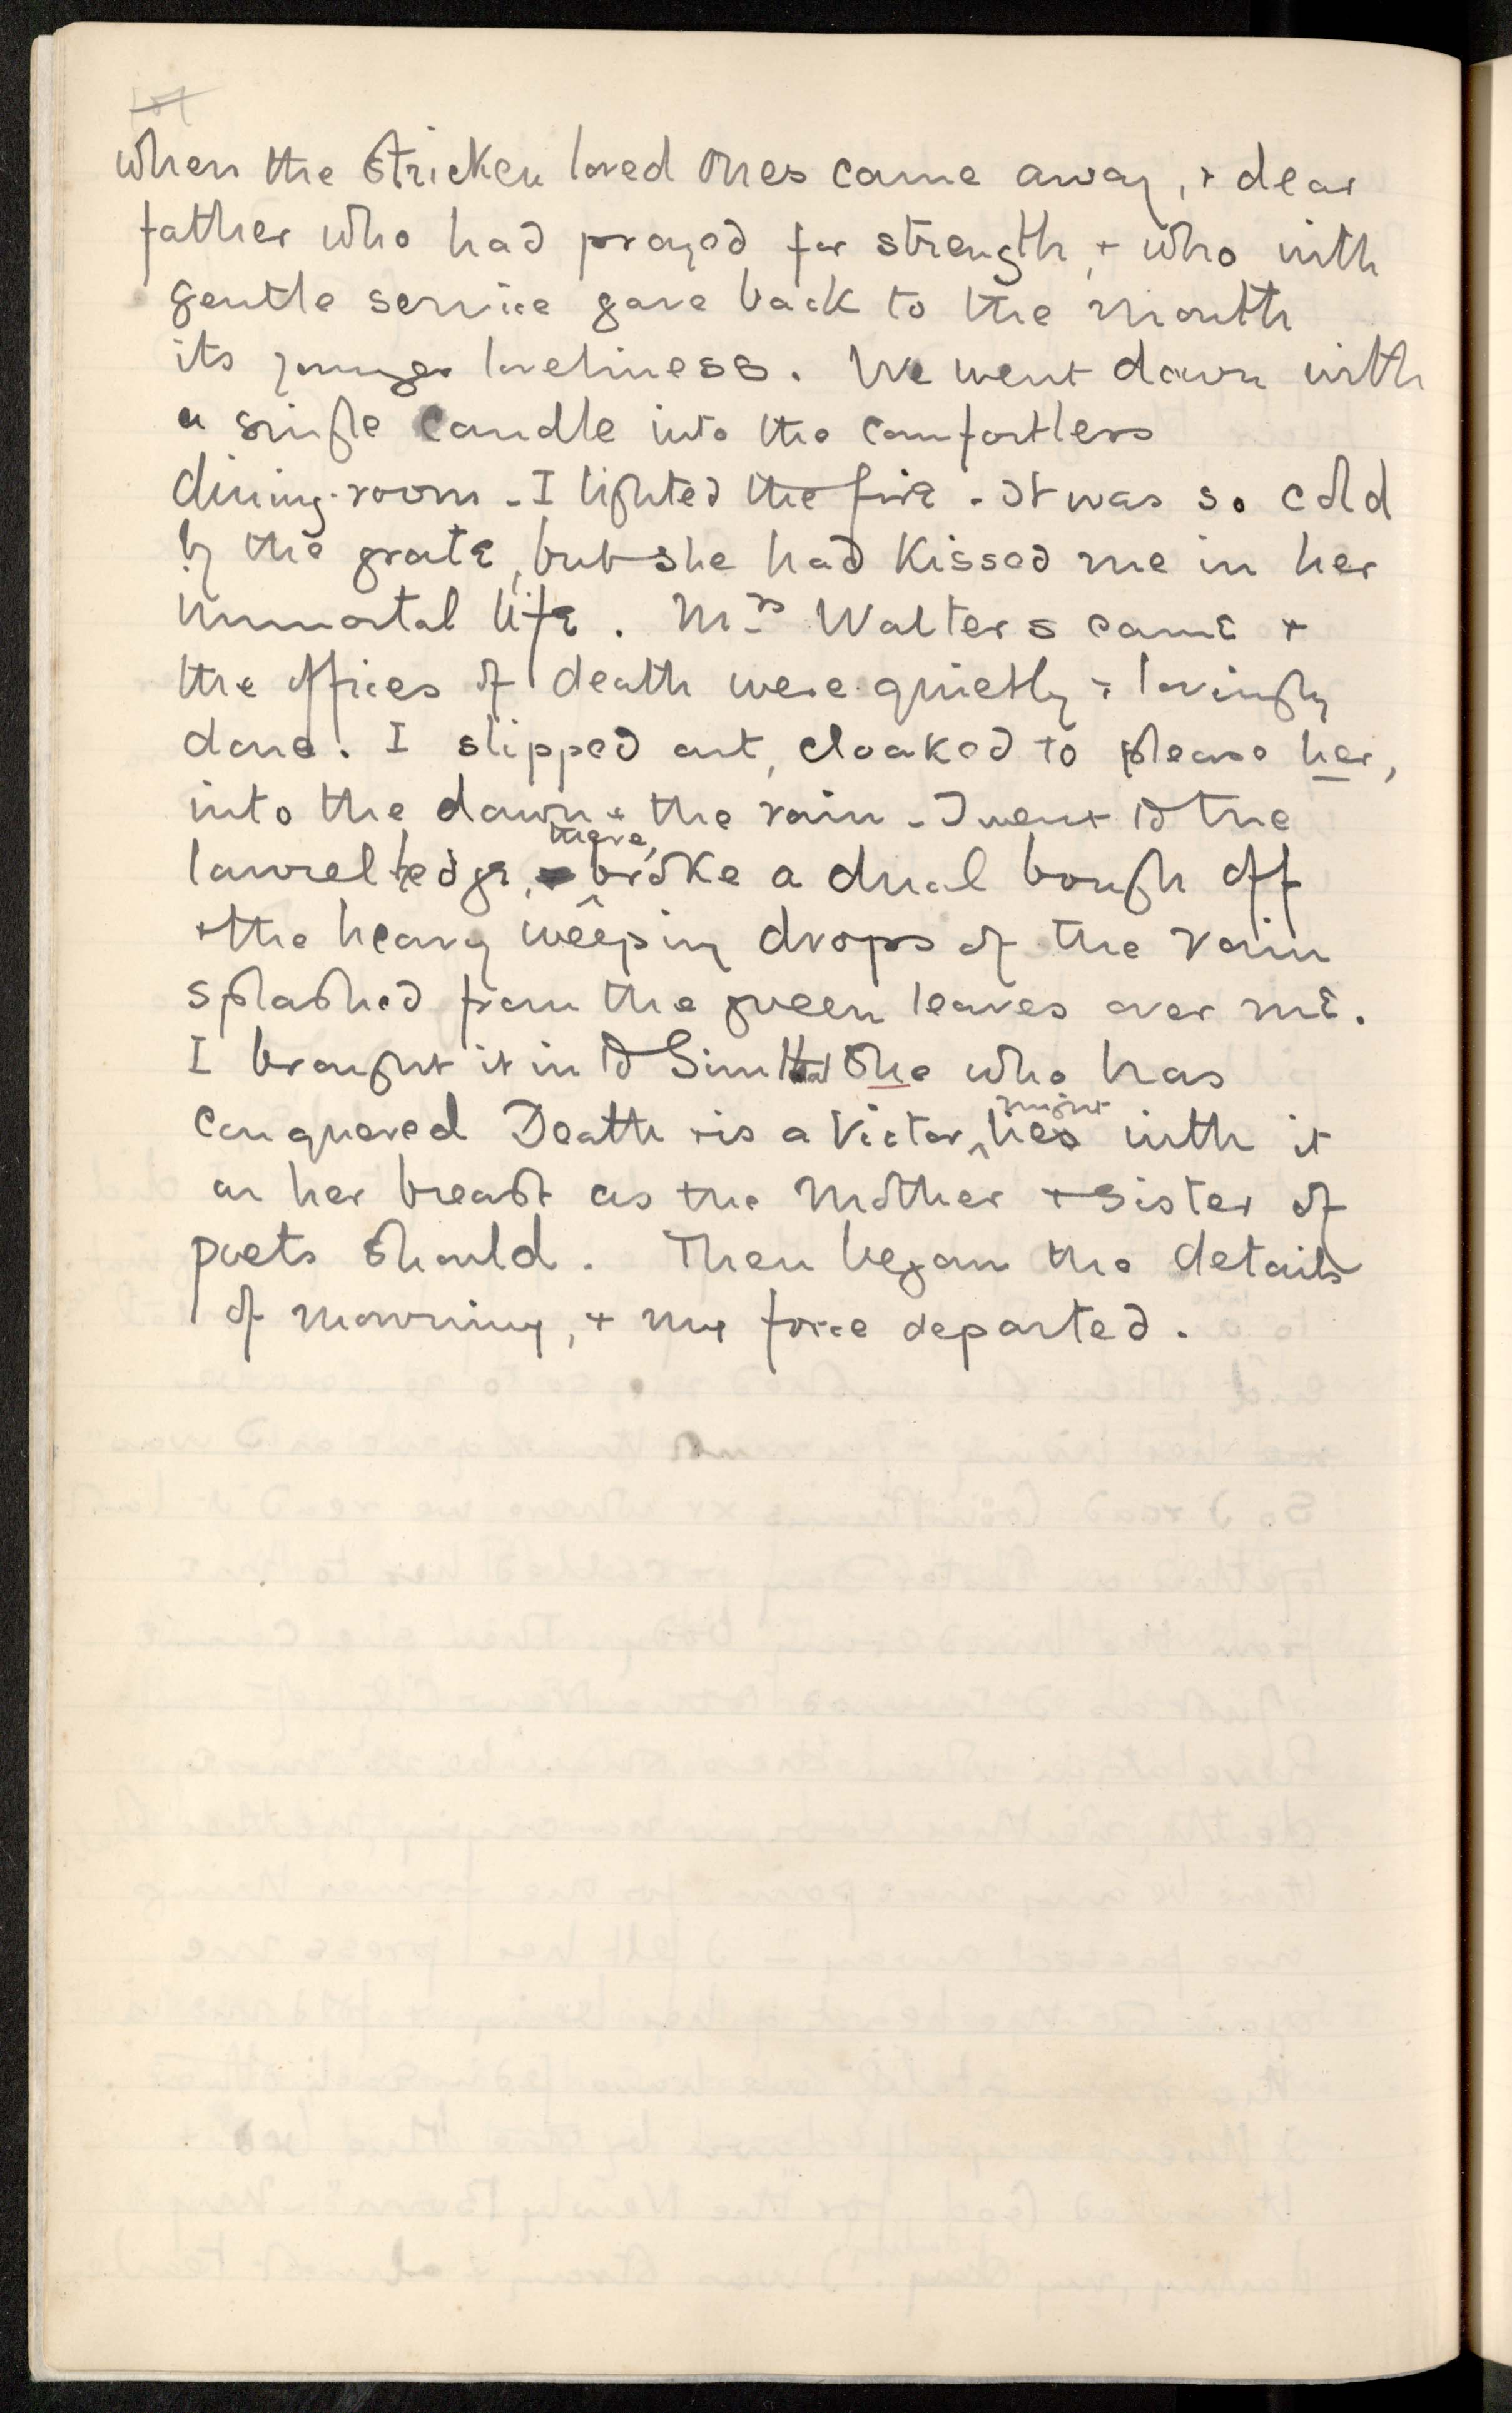 when the stricken loved ones came away, + dear
father who had prayed for strength, + who with
gentle service gave back to the mouth
its younger loveliness. We went down with
a single candle into the comfortless
dining-room - I lighted the fire - It was so cold
by the grate, but she had kissed me in her
immortal life. Mrs Walters came +
the offices of death were quietly + lovingly
done. I slipped out, cloaked to please her,
into the dawn + the rain - I went to the
there,
laurel hedge, broke a dual bough off
+ the heavy weeping drops of the rain
splashed from the green leaves over me.
I brought it in to Sim that She who has
might
conquered Death + is a Victor, lies with it
on her breast as the Mother + Sister of
poets should. Then began the details
of mourning, + my force departed.